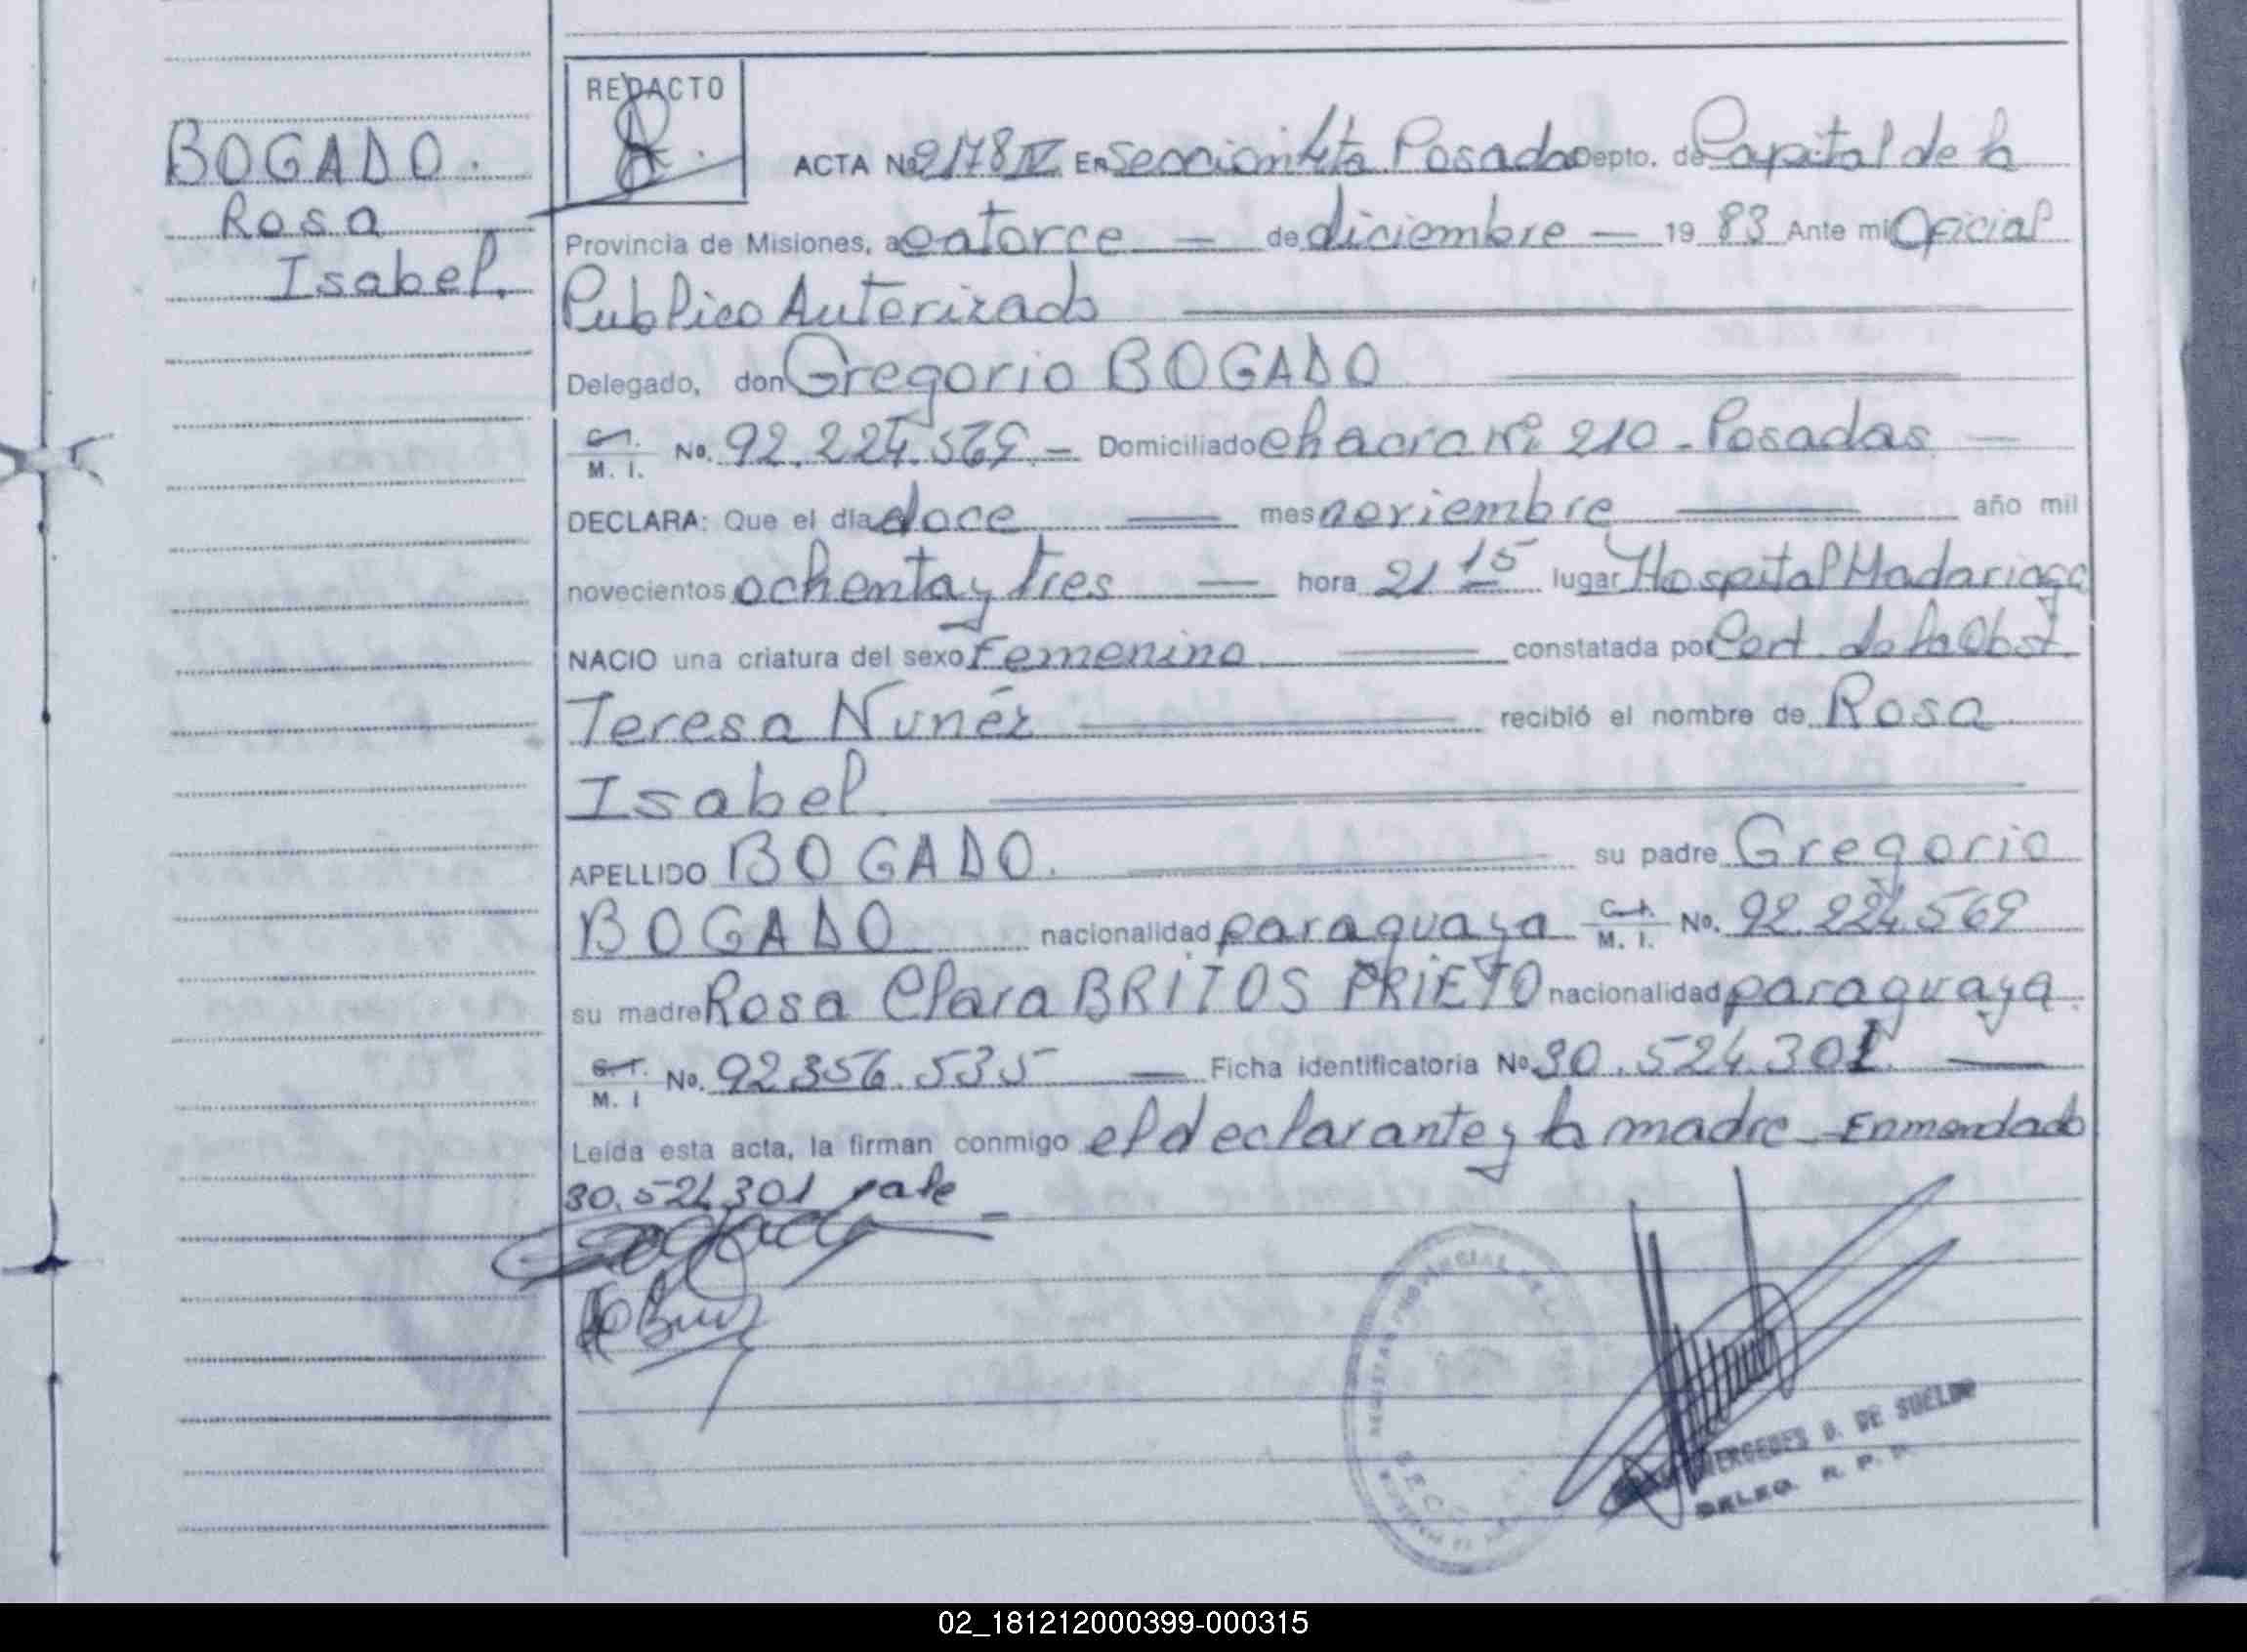 BOGADO.
Rosa
Isabel.
REDACTO
ACTA No 2178 IV En Sección 4ta Posadas Depto. de Capital de la
Provincia de Misiones, a catorce — de diciembre — 19 83 Ante mi Oficial
Publico Autorizado
Delegado, don Gregorio BOGADO
C.I. M. I. No. 92.224.569.- Domiciliado chacra Nº 210 - Posadas —
DECLARA: Que el día doce — mes noviembre — año mil
novecientos ochenta y tres — hora 21 15 lugar Hospital Madariaga
NACIO una criatura del sexo Femenino constatada por Cert. de la Obst.
Teresa Nunéz recibió el nombre de Rosa
Isabel.
APELLIDO BOGADO. su padre Gregorio
BOGADO nacionalidad paraguaya C.I. M. I. No. 92.224.569
su madre Rosa Clara BRITOS PRIETO nacionalidad paraguaya.
C.I. M. I No. 92356.535 — Ficha identificatoria No 30.524.301. —
Leída esta acta, la firman conmigo el declarante y la madre Enmendado
30.524.301 vale
REGISTRO PROVINCIAL DE L
SECC
MERCEDES D. DE SUELDO
DELEG. R. P. P.
02_181212000399-000315